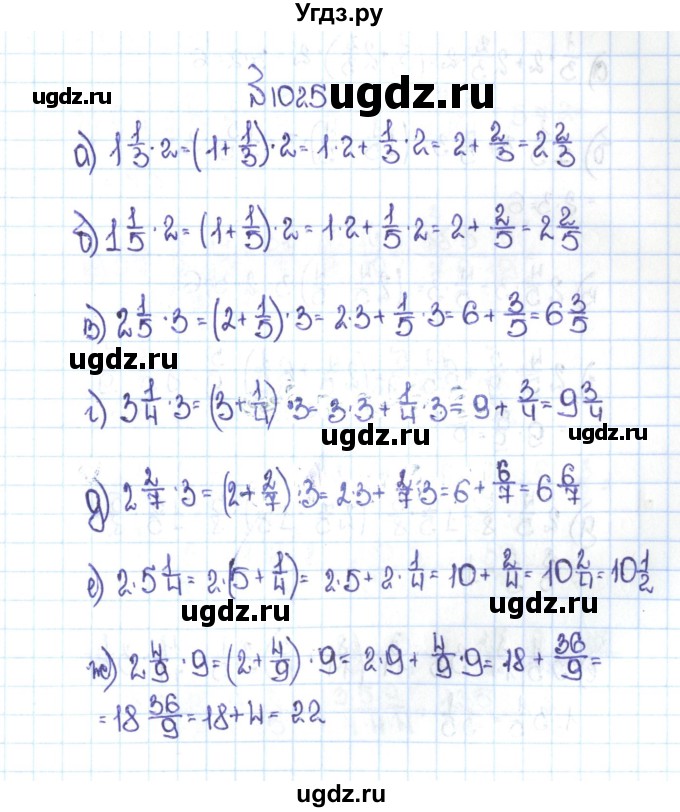 Угдз.ру
№1025
ugdz.ru ugdz.ru
а) 1 1/3 · 2 = (1 + 1/3) · 2 = 1 · 2 + 1/3 · 2 = 2 + 2/3 = 2 2/3
б) 1 1/5 · 2 = (1 + 1/5) · 2 = 1 · 2 + 1/5 · 2 = 2 + 2/5 = 2 2/5
в) 2 1/5 · 3 = (2 + 1/5) · 3 = 2 · 3 + 1/5 · 3 = 6 + 3/5 = 6 3/5
ugdz.ru
г) 3 1/4 · 3 = (3 + 1/4) · 3 = 3 · 3 + 1/4 · 3 = 9 + 3/4 = 9 3/4
ugdz.ru ugdz.ru
д) 2 2/7 · 3 = (2 + 2/7) · 3 = 2 · 3 + 2/7 · 3 = 6 + 6/7 = 6 6/7
е) 2 · 5 1/4 = 2 · (5 + 1/4) = 2 · 5 + 2 · 1/4 = 10 + 2/4 = 10 2/4 = 10 1/2
ugdz.ru ugdz.ru
ж) 2 4/9 · 9 = (2 + 4/9) · 9 = 2 · 9 + 4/9 · 9 = 18 + 36/9 =
= 18 36/9 = 18 + 4 = 22
ugdz.ru ugdz.ru
ugdz.ru